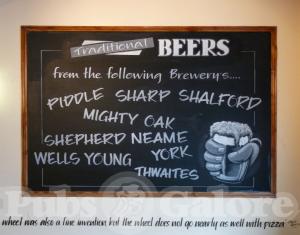 Traditional BEERS
from the following Brewery's....
PIDDLE SHARP SHALFORD
MIGHTY OAK
SHEPHERD NEAME
WELLS YOUNG YORK
THWAITES
Pubs Galore
wheel was also a fine invention but the wheel does not go nearly as well with pizza